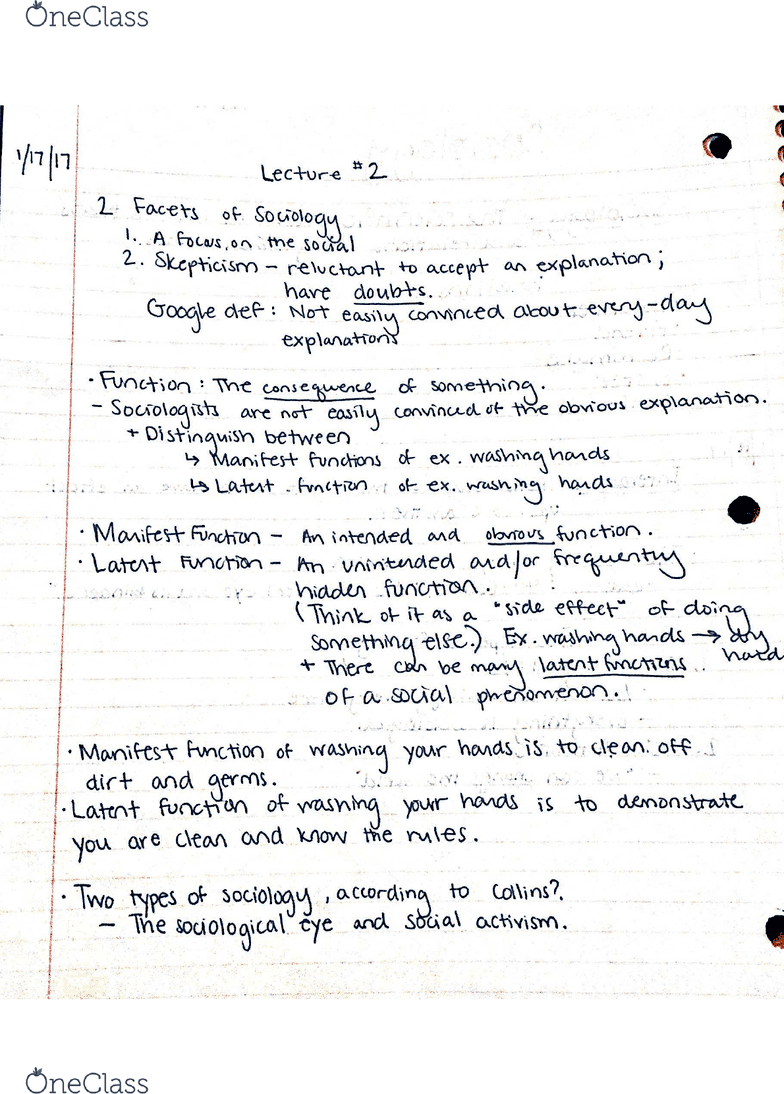 OneClass
1/17/17
Lecture #2
2 Facets of Sociology
1. A focus on the social
2. Skepticism - reluctant to accept an explanation;
have doubts.
Google def: Not easily convinced about every-day
explanations
• Function: The consequence of something.
- Sociologists are not easily convinced of the obvious explanation.
+ Distinguish between
↳ Manifest functions of ex. washing hands
↳ Latent function of ex. washing hands
• Manifest Function - An intended and obvious function.
• Latent Function - An unintended and/or frequently
hidden function.
(Think of it as a "side effect" of doing
something else.) Ex. washing hands → dry
hand
+ There can be many latent functions
of a social phenomenon.
• Manifest function of washing your hands is to clean off
dirt and germs.
• Latent function of washing your hands is to demonstrate
you are clean and know the rules.
• Two types of sociology, according to Collins?
- The sociological eye and social activism.
OneClass